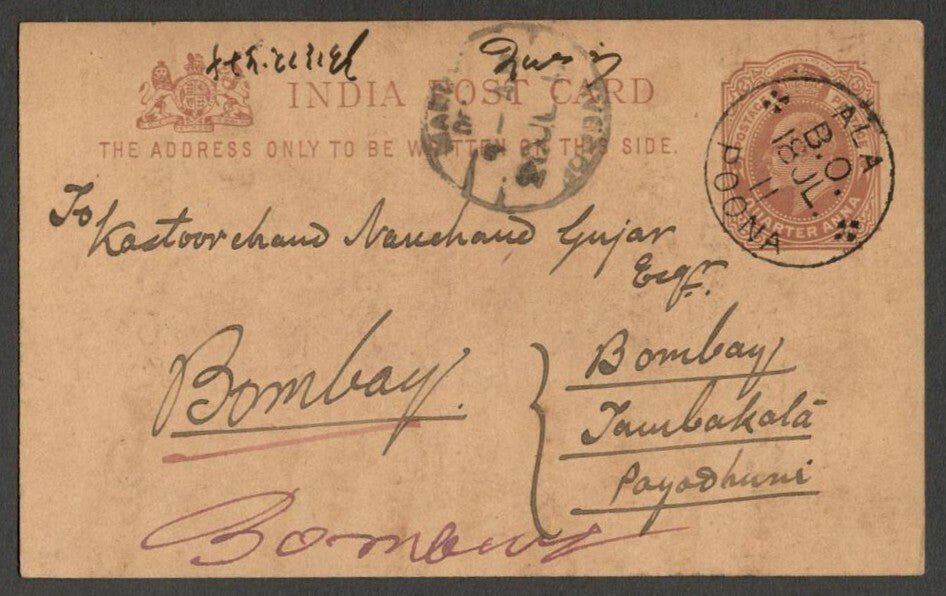 INDIA POST CARD
THE ADDRESS ONLY TO BE WRITTEN ON THIS SIDE.
POSTAGE
QUARTER ANNA
B.O.
18 JL.
11
POONA
JL
To
Kastoorchand Nanchand Gujar
Esqr.
Bombay
Bombay
Tambakatā
Payadhuni
Bombay